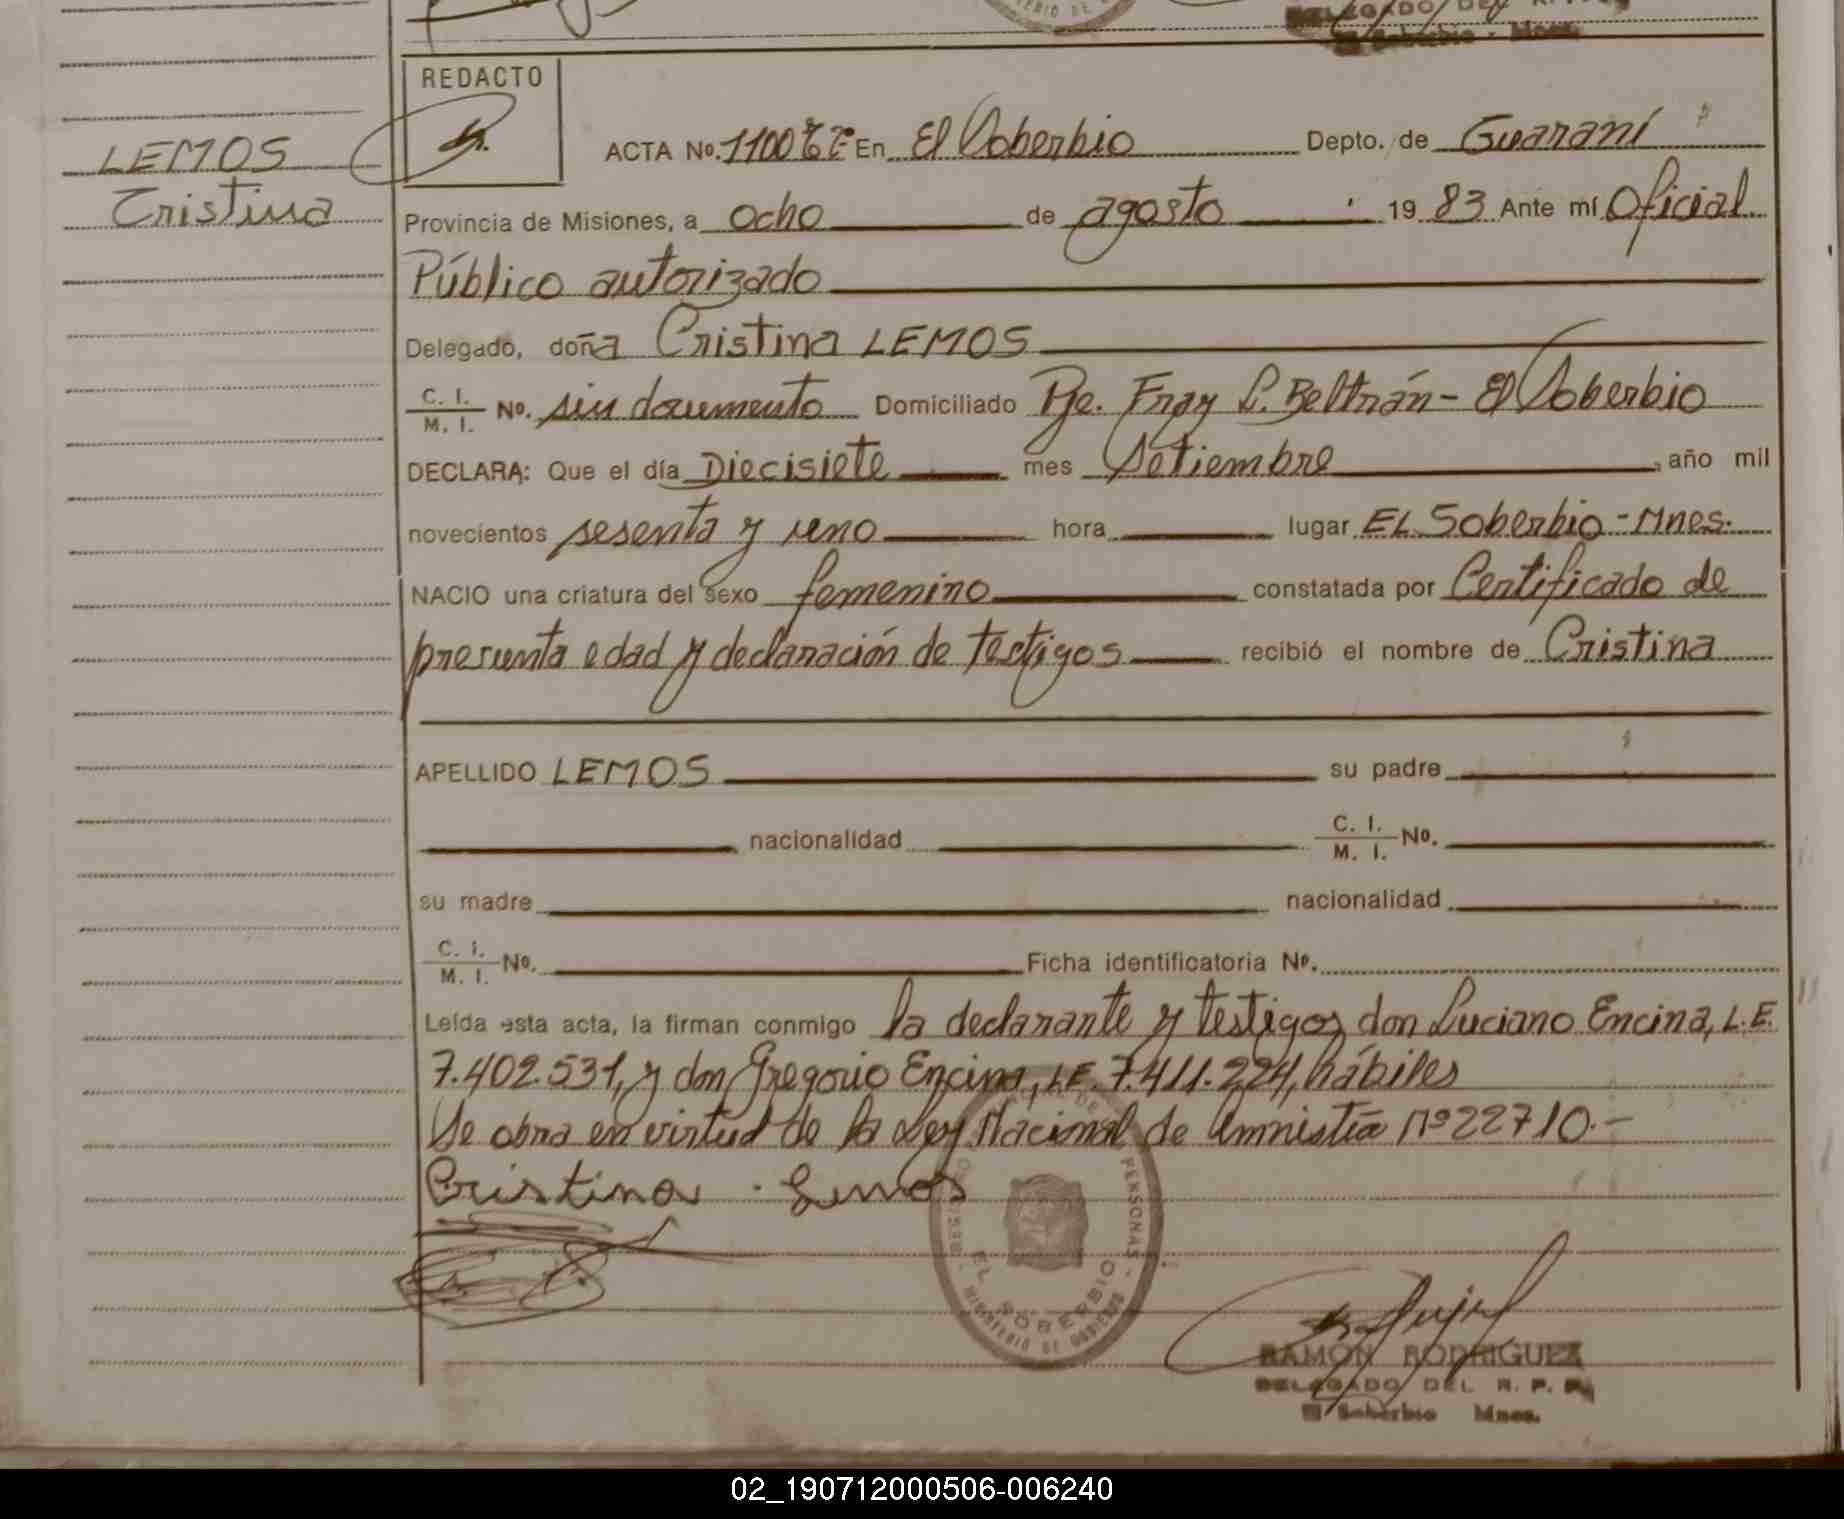 REDACTO
LEMOS
Cristina
ACTA Nº. 1100 En El Soberbio Depto. de Guaraní
Provincia de Misiones, a ocho de agosto 19 83 Ante mí Oficial
Público autorizado
Delegado, doña Cristina LEMOS
C. I. / M. I. Nº. sin documento Domiciliado Pje. Fray L. Beltrán - El Soberbio
DECLARA: Que el día Diecisiete mes Setiembre, año mil
novecientos sesenta y uno hora lugar EL Soberbio - Mnes.
NACIO una criatura del sexo femenino constatada por Certificado de
presunta edad y declaración de testigos recibió el nombre de Cristina
APELLIDO LEMOS su padre
nacionalidad C. I. / M. I. Nº.
su madre nacionalidad
C. I. / M. I. Nº. Ficha identificatoria Nº.
Leída esta acta, la firman conmigo la declarante y testigos don Luciano Encina, L.E.
7.402.531, y don Gregorio Encina, L.E. 7.411.224, hábiles
Se obra en virtud de la Ley Nacional de Amnistía Nº 22710.-
Cristina Lemos
PERSONAS
EL SOBERBIO
MINISTERIO DE GOBIERNO
RAMON RODRIGUEZ
DELEGADO DEL R. P. P.
El Soberbio Mnes.
02_190712000506-006240